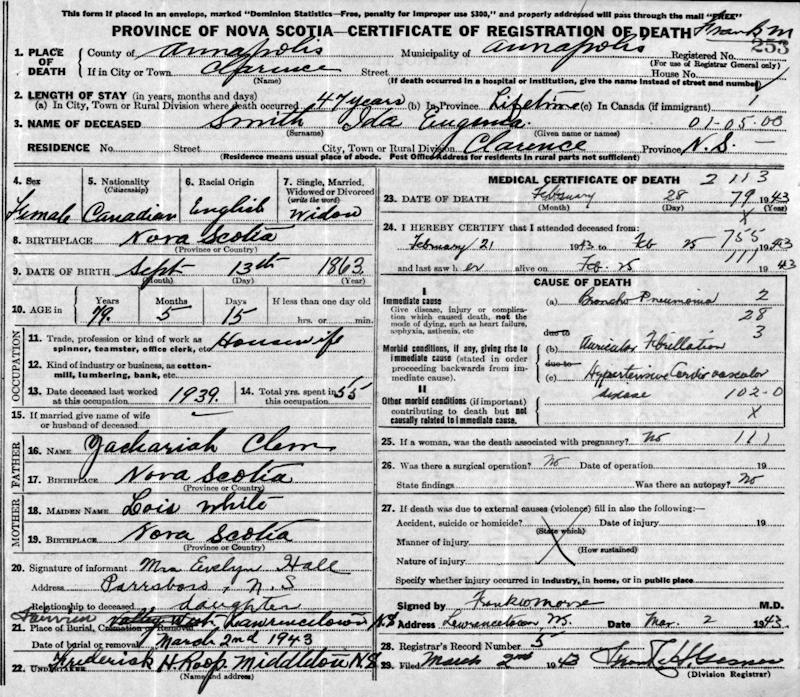 This form if placed in an envelope, marked "Dominion Statistics—Free, penalty for improper use $300," and properly addressed will pass through the mail "FREE"
PROVINCE OF NOVA SCOTIA—CERTIFICATE OF REGISTRATION OF DEATH Frank M
1. PLACE OF DEATH County of Annapolis Municipality of Annapolis Registered No. 253
(For use of Registrar General only)
If in City or Town Clarence Street House No.
(Name) (If death occurred in a hospital or institution, give the name instead of street and number)
2. LENGTH OF STAY (in years, months and days)
(a) In City, Town or Rural Division where death occurred 47 years (b) In Province Lifetime (c) In Canada (if immigrant)
3. NAME OF DECEASED Smith Ida Eugenia 01-05-00
(Surname) (Given name or names)
RESIDENCE No. Street City, Town or Rural Division Clarence Province N.S.
(Residence means usual place of abode. Post Office Address for residents in rural parts not sufficient)
4. Sex 5. Nationality (Citizenship) 6. Racial Origin 7. Single, Married, Widowed or Divorced (write the word)
Female Canadian English Widow
8. BIRTHPLACE Nova Scotia
(Province or Country)
9. DATE OF BIRTH Sept 13th 1863
(Month) (Day) (Year)
10. AGE in Years Months Days If less than one day old
79 5 15 hrs. or min.
OCCUPATION
11. Trade, profession or kind of work as spinner, teamster, office clerk, etc. Housewife
12. Kind of industry or business, as cotton-mill, lumbering, bank, etc.
13. Date deceased last worked at this occupation 1939. 14. Total yrs. spent in this occupation 55
15. If married give name of wife or husband of deceased
FATHER
16. NAME Zachariah Clem
17. BIRTHPLACE Nova Scotia
(Province or Country)
MOTHER
18. MAIDEN NAME Lois White
19. BIRTHPLACE Nova Scotia
(Province or Country)
20. Signature of informant Mrs Evelyn Hall
Address Parrsboro, N.S
Relationship to deceased daughter
21. Place of Burial, Cremation or Removal Valley West Lawrencetown N.S
Date of burial or removal March 2nd 1943
22. UNDERTAKER Frederick H. Roop Middleton N.S.
(Name and address)
MEDICAL CERTIFICATE OF DEATH 2 113
23. DATE OF DEATH February 28 79 1943
(Month) (Day) (Year)
X
24. I HEREBY CERTIFY that I attended deceased from:
February 21 1943 to Feb 25 755 1943
and last saw her alive on Feb. 25 111 1943
CAUSE OF DEATH
I
Immediate cause
Give disease, injury or complication which caused death, not the mode of dying, such as heart failure, asphyxia, asthenia, etc
(a) Broncho Pneumonia 2
28
due to 3
Morbid conditions, if any, giving rise to immediate cause (stated in order proceeding backwards from immediate cause).
(b) Auricular Fibrillation
due to
(c) Hypertensive Cardio vascular
disease 102-0
II
Other morbid conditions (if important) contributing to death but not causally related to immediate cause.
X
25. If a woman, was the death associated with pregnancy? No 111
26. Was there a surgical operation? No Date of operation 19
State findings Was there an autopsy? No
27. If death was due to external causes (violence) fill in also the following:—
Accident, suicide or homicide? Date of injury 19
(State which)
Manner of injury
(How sustained)
Nature of injury
Specify whether injury occurred in industry, in home, or in public place
Signed by Frank Morse M.D.
Address Lawrencetown NS. Date Mar. 2 1943.
28. Registrar's Record Number 5
29. Filed March 2nd 1943
(Division Registrar)